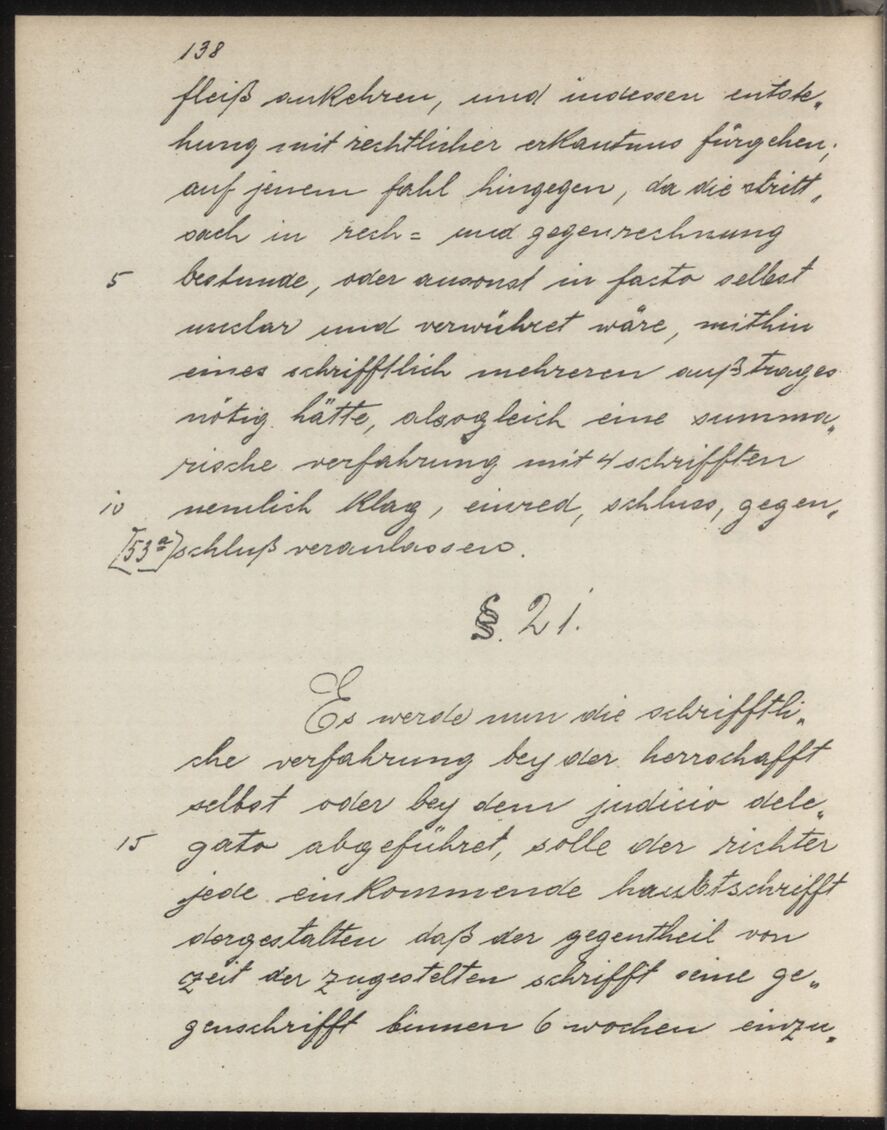 138
fleiß ankehren, und indessen entste„
hung mit rechtlicher erkantnus fürgehen;
auf jenem fahl hingegen, da die stritt„
sach in rech= und gegenrechnung
5 bestunde, oder ansonst in facto selbst
unclar und verwühret wäre, mithin
eines schrifftlich mehreren außtrages
nötig hätte, alsogleich eine summa„
rische verfahrung mit 4 schrifften
10 nemlich klag, einred, schluss, gegen„
[53a] schluß veranlassen.
§. 21.
Es werde nun die schrifftli„
che verfahrung bey der herrschafft
selbst oder bey dem judicio dele„
15 gato abgeführet, solle der richter
jede einkommende haubtschrifft
dergestalten daß der gegentheil von
zeit der zugestelten schrifft seine ge„
genschrifft binnen 6 wochen einzu„